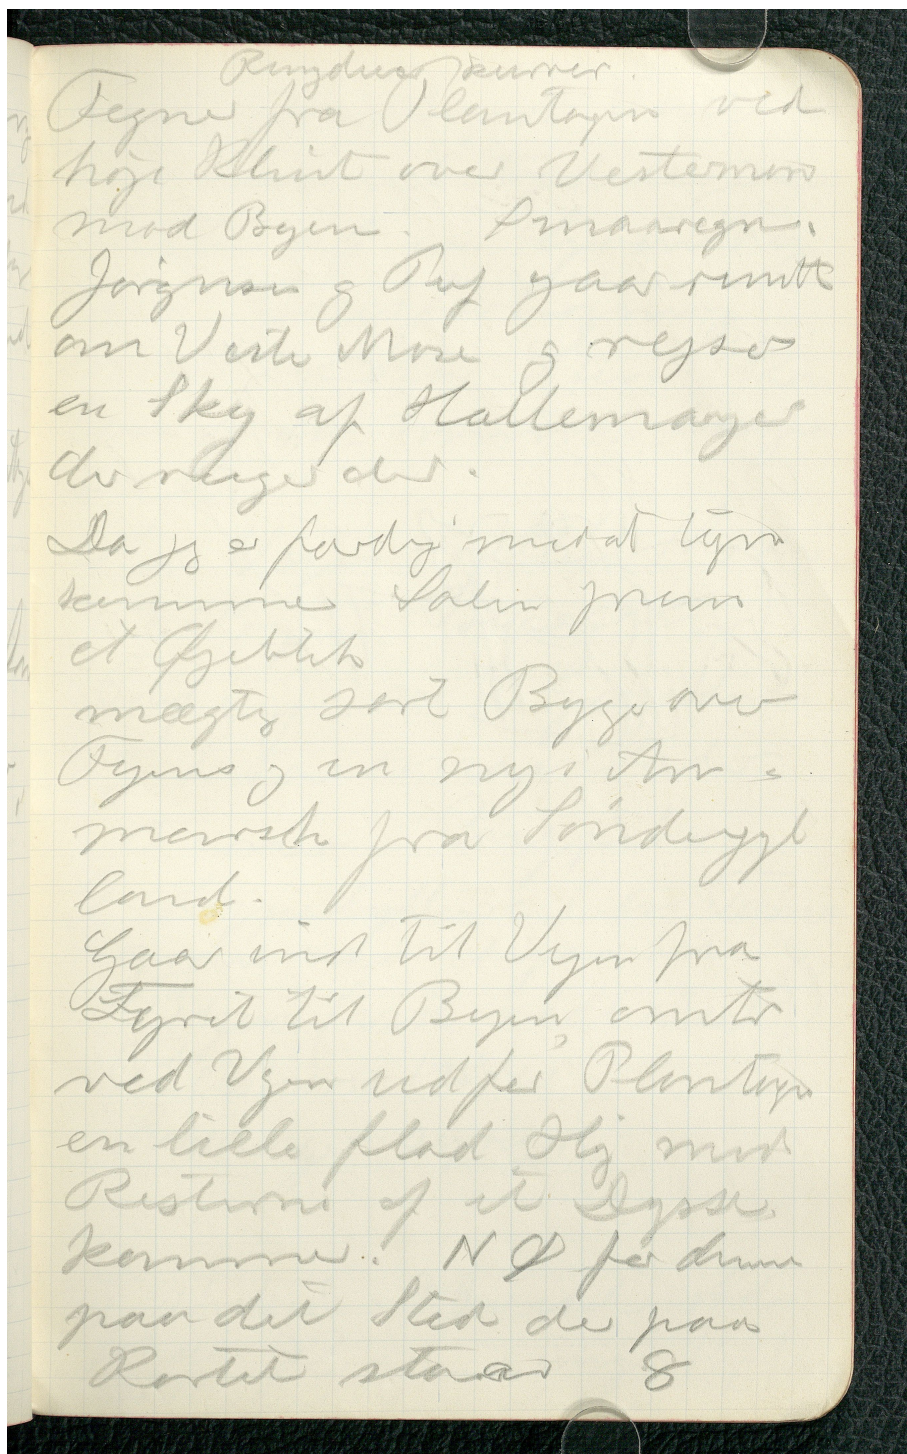 Ringduer kurrer.
Tegner fra Plantagen ved
høje Klint over Vestermose
mod Byen. Smaaregn.
Jørgensen og Puf gaar rundt
om Veste Mose og rejser
en Sky af Hættemaager
der ruger der.
Da jeg er færdig med at tegne
kommer Solen frem
et Øjeblik
mægtig sort Byge over
Fyens og en ny i An-
marsch fra Sönderjyl
land.
Gaar ind til Vejen fra
Fyret til Byen, omtr
ved Vejen udfor Plantagen
en lille flad Høj med
Resterne af et Dysse
kammer. N Ø for denne
paa det Sted der paa
Kortet staar 8